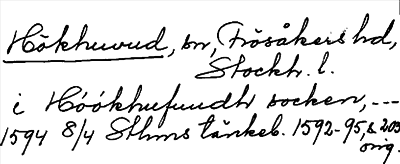 Hökhuvud, sn, Frösåkers hd,
Stockh. l.
i Höökhufuudh socken, ---
1594 8/4 Sthms tänkeb. 1592-95, s. 203
orig.